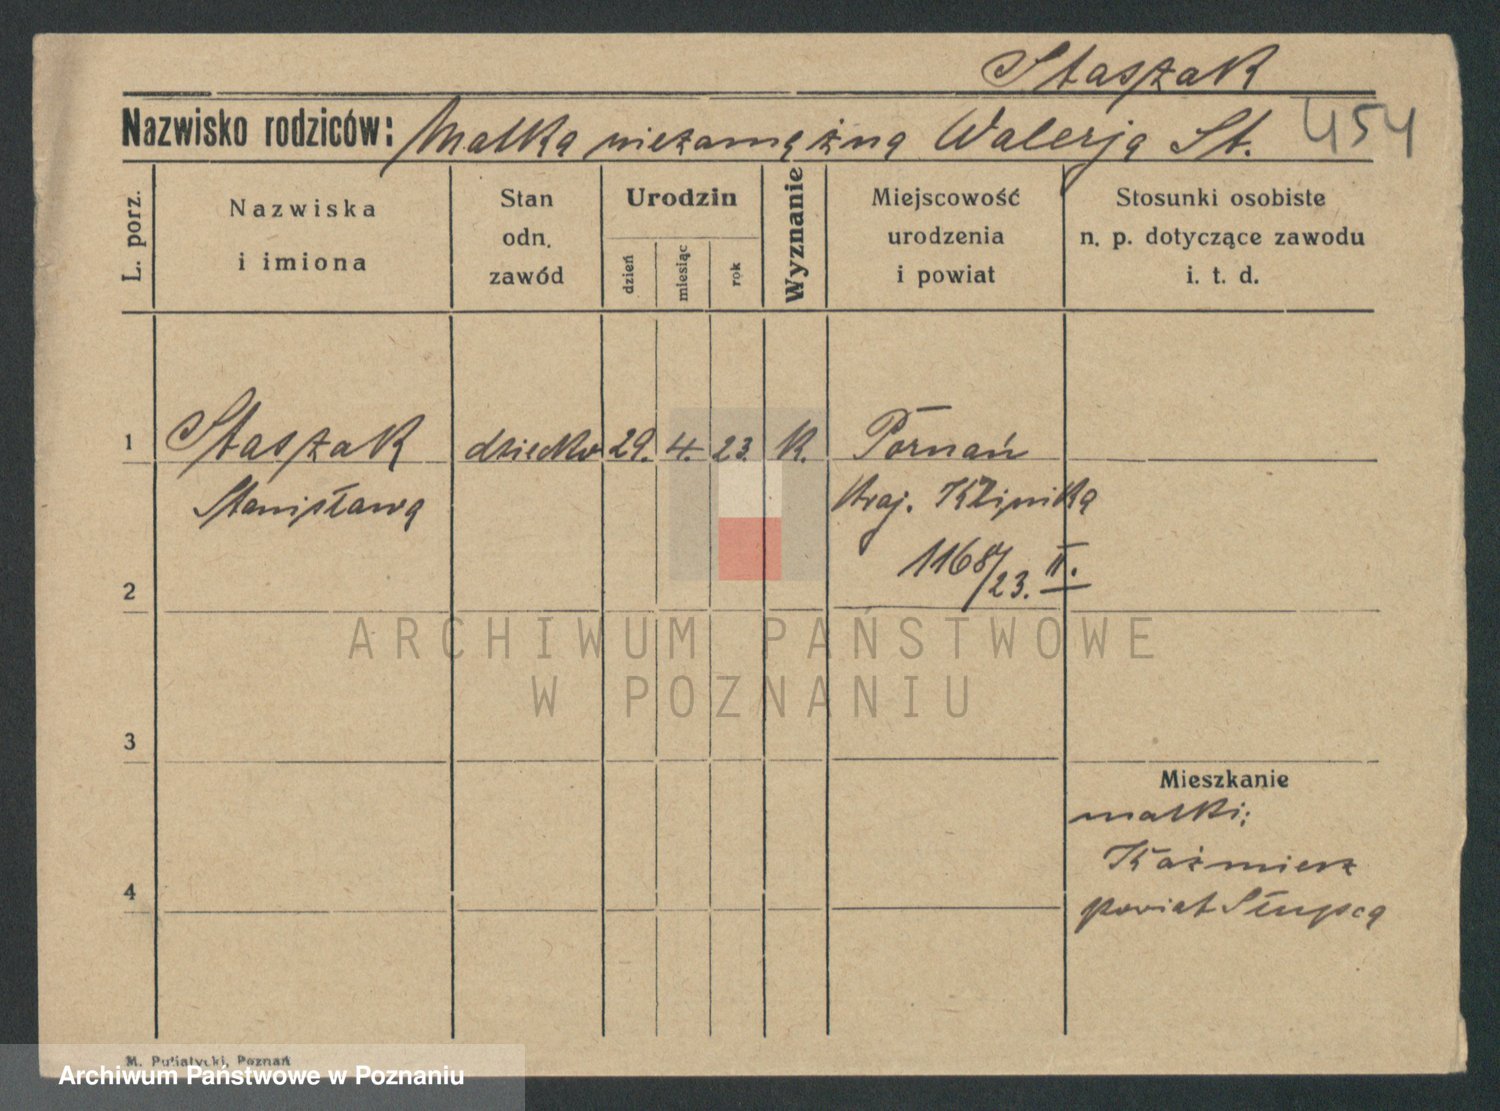 Staszak
Nazwisko rodziców: Matka niezamężna Walerja St. 454
L. porz.
Nazwiska
i imiona
Stan
odn.
zawód
Urodzin
dzień
miesiąc
rok
Wyznanie
Miejscowość
urodzenia
i powiat
Stosunki osobiste
n. p. dotyczące zawodu
i. t. d.
1 Staszak dziecko 29. 4. 23. k. Poznań
Stanisława Kraj. Klinika
1168/23. II.
2
3
Mieszkanie
matki:
Kaźmierz
4
powiat Słupca
M. Putiatycki, Poznań
ARCHIWUM PAŃSTWOWE
W POZNANIU
Archiwum Państwowe w Poznaniu